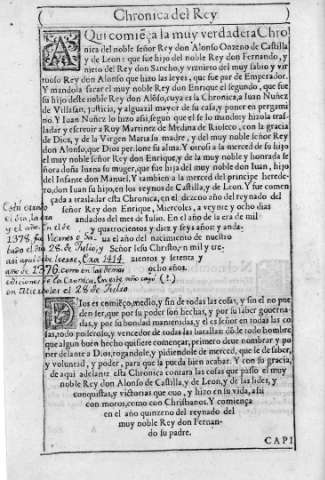 Chronica del Rey
AQui comiẽça la muy verdadera Chro
nica del noble señor Rey don Alonso Onzeno de Castilla
y de Leon: que fue hijo del noble Rey don Fernando, y
nieto del Rey don Sancho, y viznieto del muy sabio y vir
tuoso Rey don Alonso que hizo las leyes, que fue par de Emperador.
Y mandola sacar el muy noble Rey don Enrique el segundo, que fue
su hijo deste noble Rey don Alõso, cuya es la Chronica, a Iuan Nuñez
de Villasan, justicia, y alguazil mayor de la su casa, y poner en pergami
no. Y Iuan Nuñez lo hizo assi, segun que el se lo mando: y hizola tras
ladar y escreuir a Ruy Martinez de Medina de Rioseco, con la gracia
de Dios, y de la Virgen Maria su madre, y del muy noble señor Rey
don Alonso, que Dios perdone su alma. Y otrosi a merced de su hijo
el muy noble señor Rey don Enrique, y de la muy noble y honrada se
ñora doña Iuana su muger, que fue hija del muy noble don Iuan, hijo
del Infante don Manuel. Y tambien a la merced del principe herede-
ro, don Iuan su hijo, en los reynos de Castilla, y de Leon. Y fue comen
çada a trasladar esta Chronica, en el dezeno año del reynado del
señor Rey don Enrique, Miercoles, a veynte y ocho dias
andados del mes de Iulio. En el año de la era de mil
y quatrocientos y diez y seys años: y andan
us el año del nacimiento de nuestro
Señor Iesu Christo, en mil y tre-
zientos y setenta y
ocho años.
el dia, la era
y el año. En el de
1376 fue Viernes o Sa
bado el dia 28 de Julio, y
assi aqui debe leerse, Era 1414
año de 1376. como en las demas
ediciones de la Cronica. En este año cayó (!)
en Miercoles el 28 de Julio
DIos es comiẽço, medio, y fin de todas las cosas, y sin el no pue
den ser, que por su poder son hechas, y por su saber gouerna-
das, y por su bondad mantenidas, y el es señor en todas las co
sas, todo poderoso, y vencedor de todas las batallas: dõde todo hombre
que algun buen hecho quisiere començar, primero deue nombrar y po
ner delante a Dios, rogandole, y pidiendole de merced, que le de saber,
y voluntad, y poder, para que la pueda bien acabar. Y con su gracia,
de aqui adelante esta Chronica contara las cosas que passo el muy
noble Rey don Alonso de Castilla, y de Leon, y de las lides, y
conquistas, y victorias que ouo, y hizo en su vida, assi
con moros, como con Christianos. Y comiença
en el año quinzeno del reynado del
muy noble Rey don Fernan-
do su padre.
CAPI